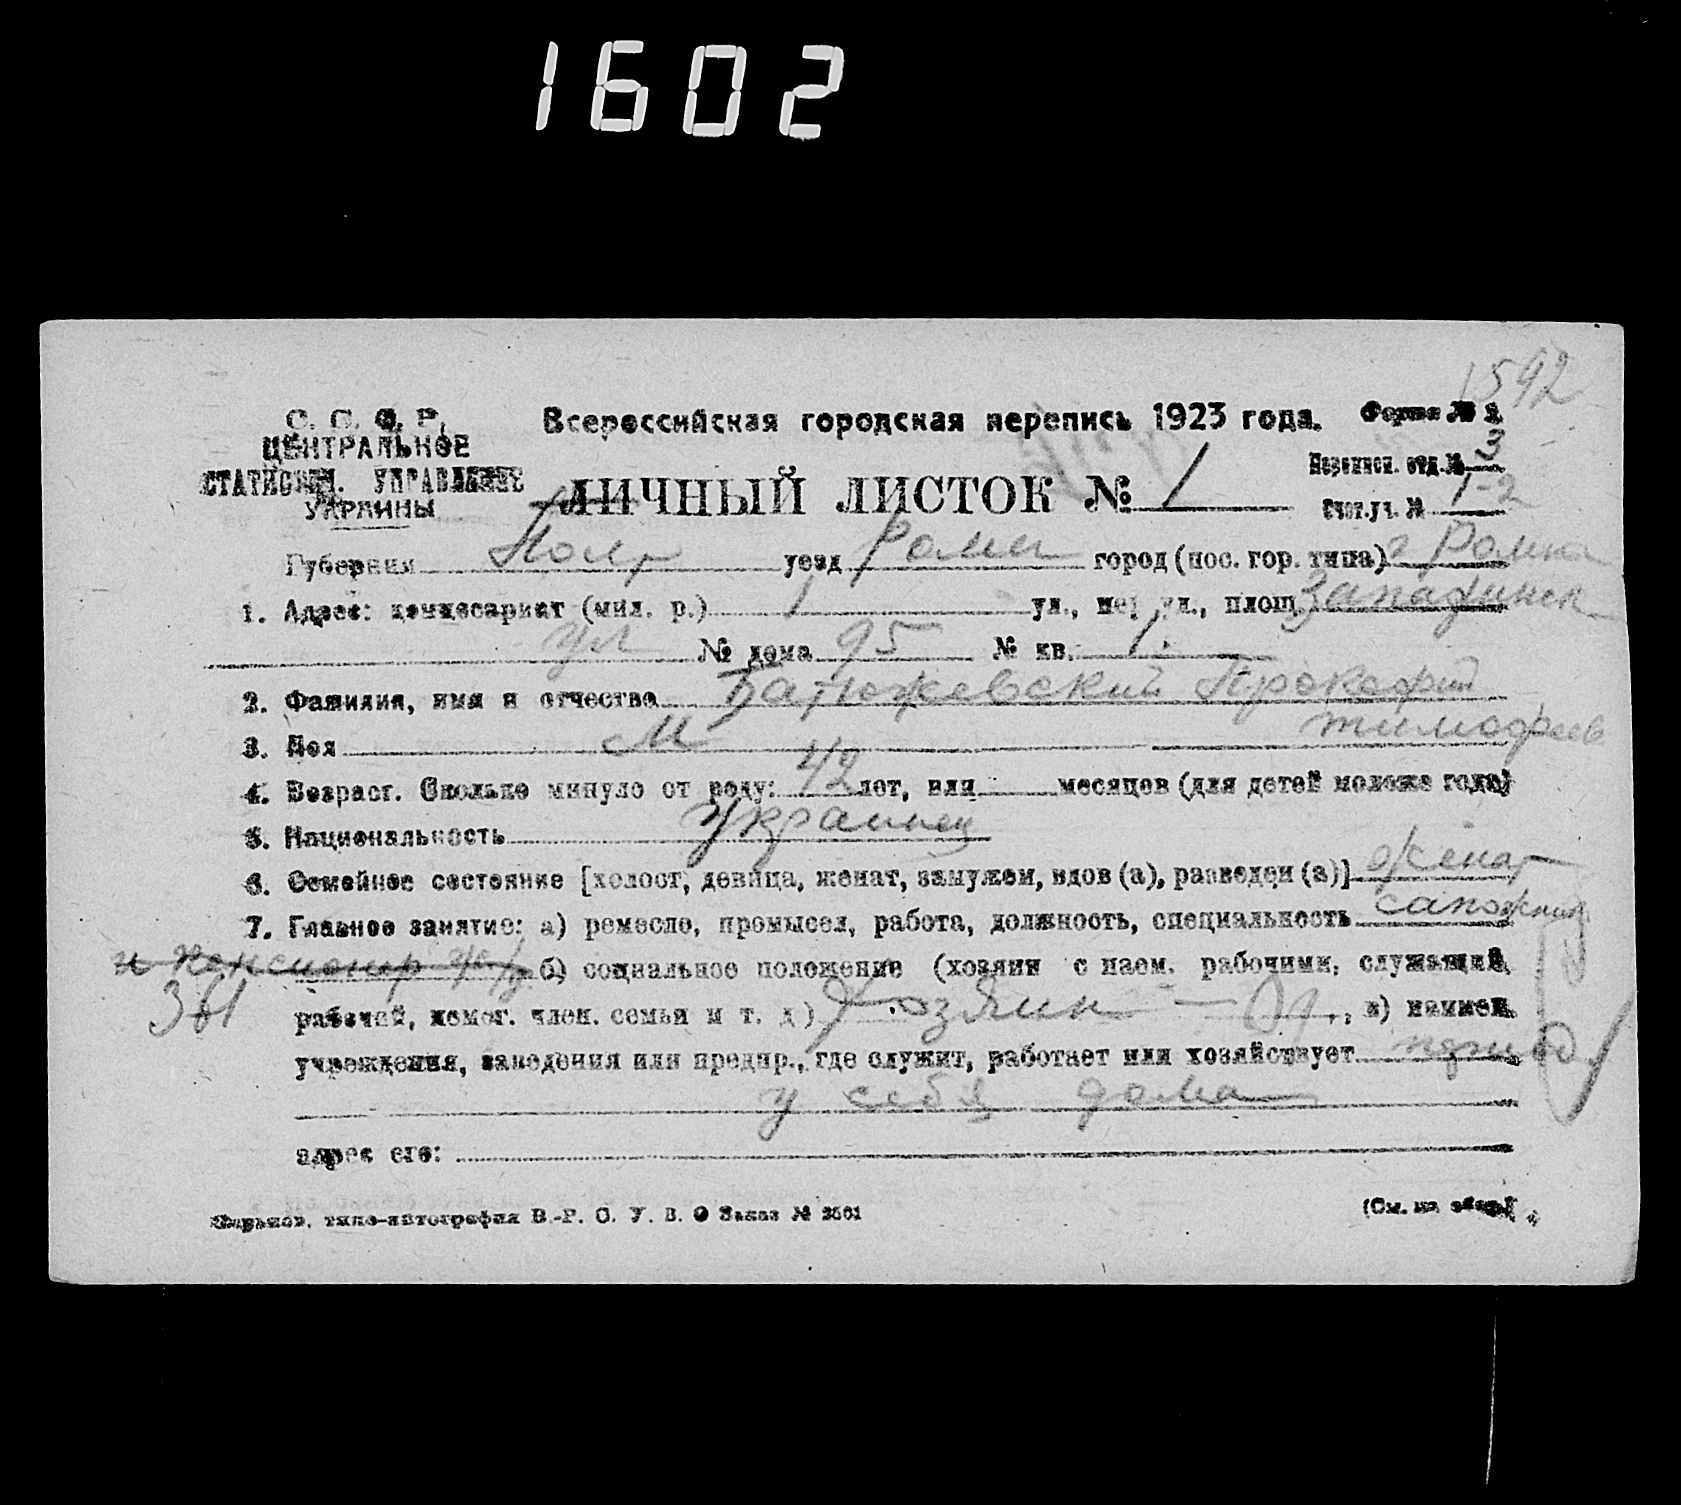 1602
1592
С. С. С. Р.
ЦЕНТРАЛЬНОЕ
СТАТИСТИЧ. УПРАВЛЕНИЕ
УКРАИНЫ
Всероссийская городская перепись 1923 года. Форма № 2
ЛИЧНЫЙ ЛИСТОК № 1
Переписн. отд. № 3
Счет.уч. № 1-2
Губерния Полт уезд Ромен город (пос. гор. типа) г Ромна
1. Адрес: комиссариат (мил. р.) 1 ул., пер. ул., площ.
ул № дома 95 № кв. 1.
2. Фамилия, имя и отчество Батюжевский Прокофий
Тимофеев
3. Пол М
4. Возраст. Сколько минуло от роду: 42 лет, или месяцев (для детей моложе года)
5. Национальность Украинец
6. Семейное состояние [холост, девица, женат, замужем, вдов (а), разведен (а)] женат
7. Главное занятие: а) ремесло, промысел, работа, должность, специальность сапожник
и пенсионер б) социальное положение (хозяин с наем. рабочими, служащий,
361 рабочий, помог. член. семьи и т. д.) Хозяин — Од, в) наимен.
учреждения, заведения или предпр., где служит, работает или хозяйствует
у себя дома
адрес его:
Харьков. типо-литография В.-Р. С. У. В. О Заказ № 3561 (См. на обор.)